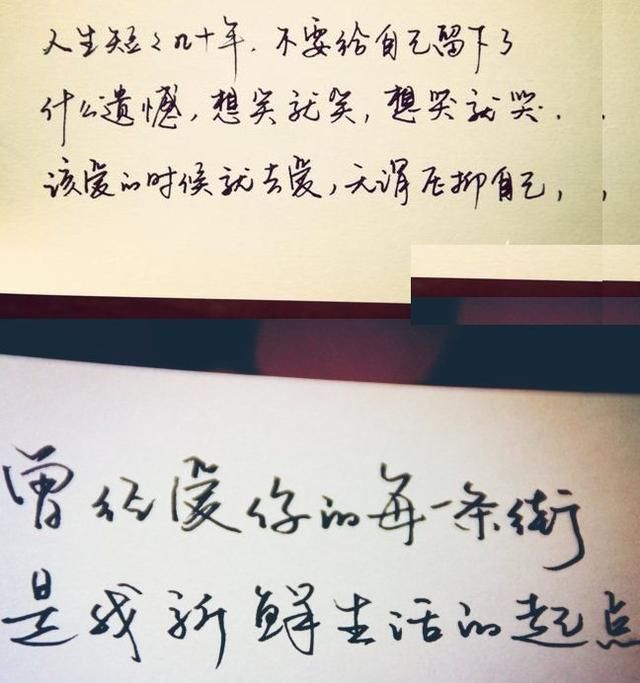 人生短々几十年.不要给自己留下了
什么遗憾,想笑就笑,想哭就哭.
该爱的时候就去爱,无谓压抑自己,
曾经爱你的每一条街
是我新鲜生活的起点